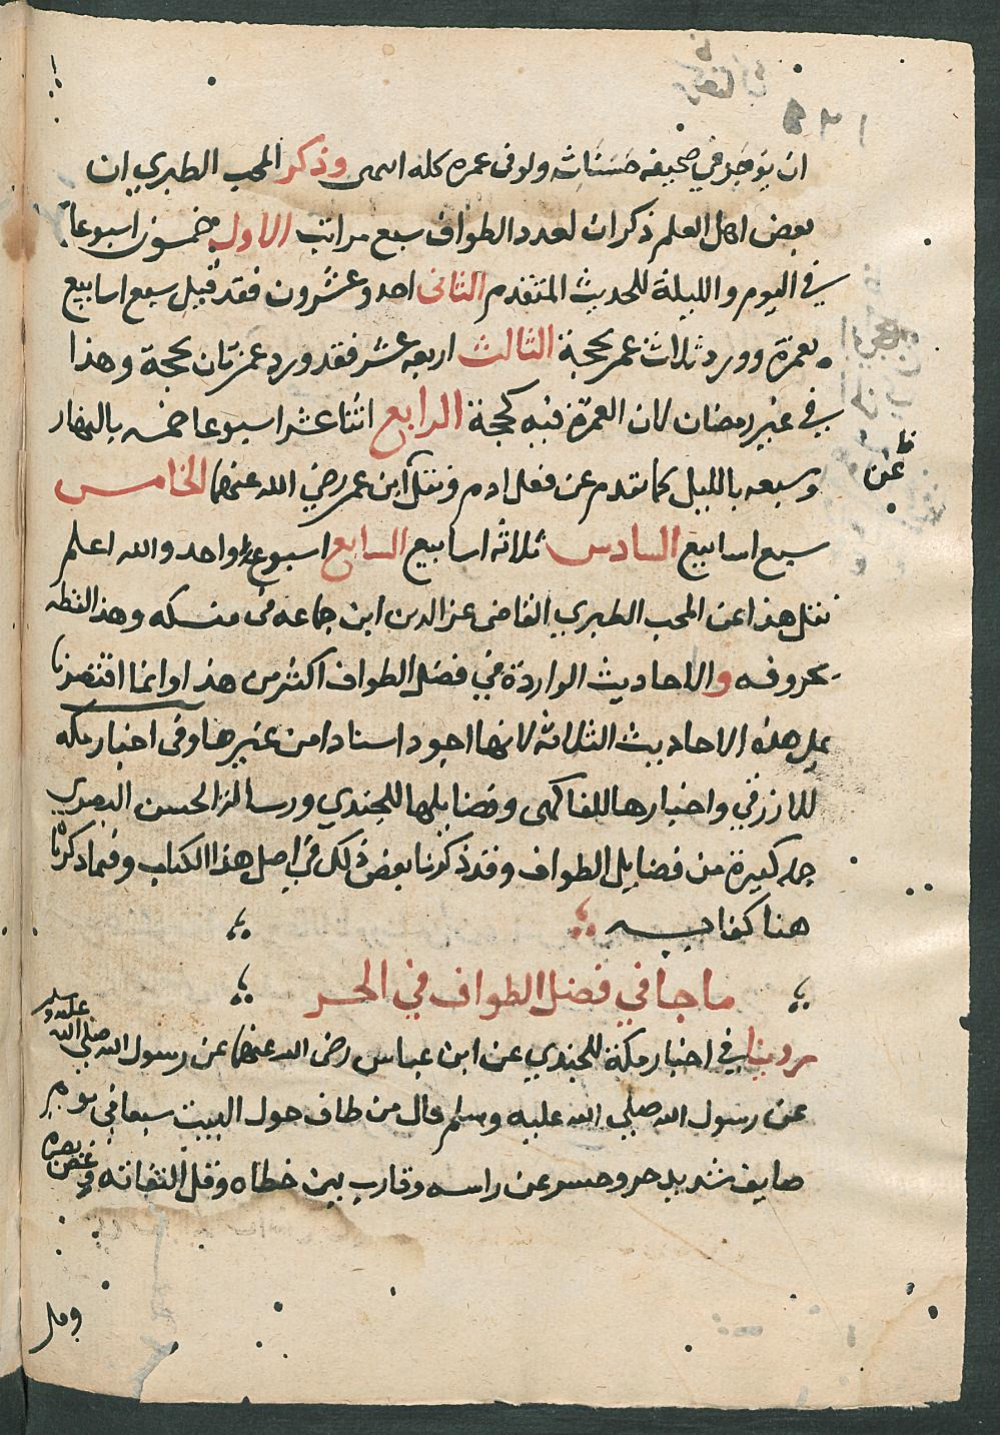 ان يوجد في صحيفه حسنات ولو في عمره كله انتهى وذكر المحب الطبري ان
بعض اهل العلم ذكر ان لعدد الطواف سبع مراتب الاول خمسون اسبوعا
في اليوم والليلة للحديث المتقدم الثاني احد وعشرون فقد قيل سبع اسابيع
بعمرة وورد ثلاث عمر بحجة الثالث اربعه عشر فقد ورد عمرتان بحجة وهذا
في غير رمضان لان العمرة فيه كحجة الرابع اثنا عشر اسبوعا خمسه بالنهار
وسبعه بالليل كما تقدم عن فعل ادم وفعل ابن عمر رضي الله عنهما الخامس
عن
سبع اسابيع السادس ثلاثه اسابيع السابع اسبوع واحد والله اعلم
نقل هذا عن المحب الطبري القاضي عز الدين ابن جماعه في منسكه وهذا لفظه
بحروفه والاحاديث الواردة في فضل الطواف اكثر من هذا وانما اقتصرنا
على هذه الاحاديث الثلاثه لانها اجود اسنادا من غيرها وفي اخبار مكه
للازرقي واخبارها للفاكهي وفضايلها للجندي ورسالة الحسن البصري
جمله كبيرة من فضايل الطواف وقد ذكرنا بعض ذلك في اصل هذا الكتاب وفيما ذكرنا
هنا كفايه
ما جا في فضل الطواف في الحر
روينا في اخبار مكة للجندي عن ابن عباس رضي الله عنهما عن رسول الله صلى الله عليه وسلم
عن رسول الله صلى الله عليه وسلم قال من طاف حول البيت سبعا في يوم
صايف شديد حره وحسر عن راسه وقارب بين خطاه وقل التفاته وغض بصره
وقل